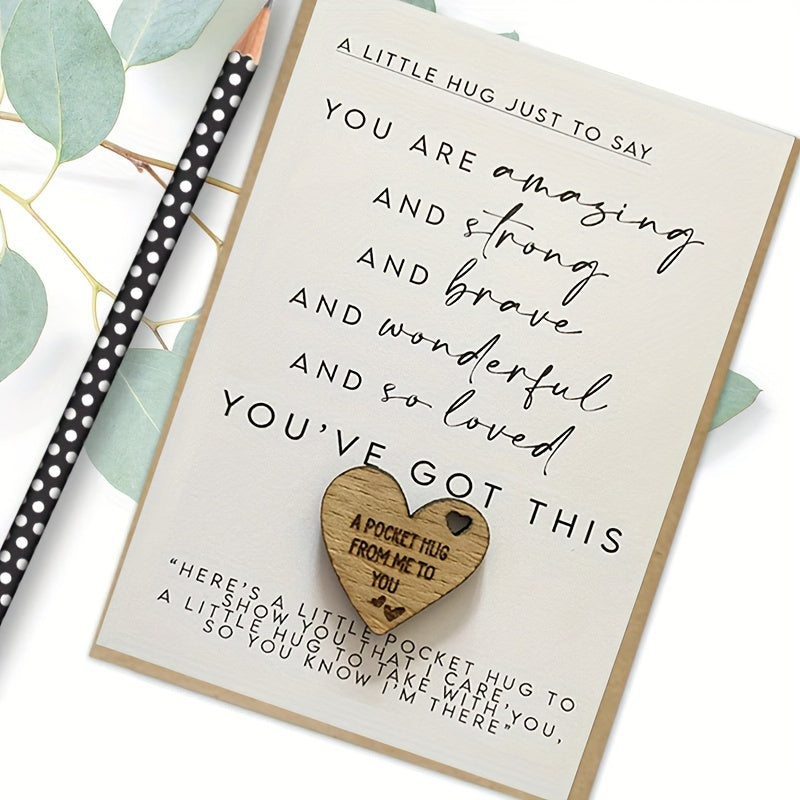 A LITTLE HUG JUST TO SAY
YOU ARE amazing
AND strong
AND brave
AND wonderful
AND so loved
YOU'VE GOT THIS
A POCKET HUG
FROM ME TO
YOU
"HERE'S A LITTLE POCKET HUG TO
SHOW YOU THAT I CARE,
A LITTLE HUG TO TAKE WITH YOU,
SO YOU KNOW I'M THERE"